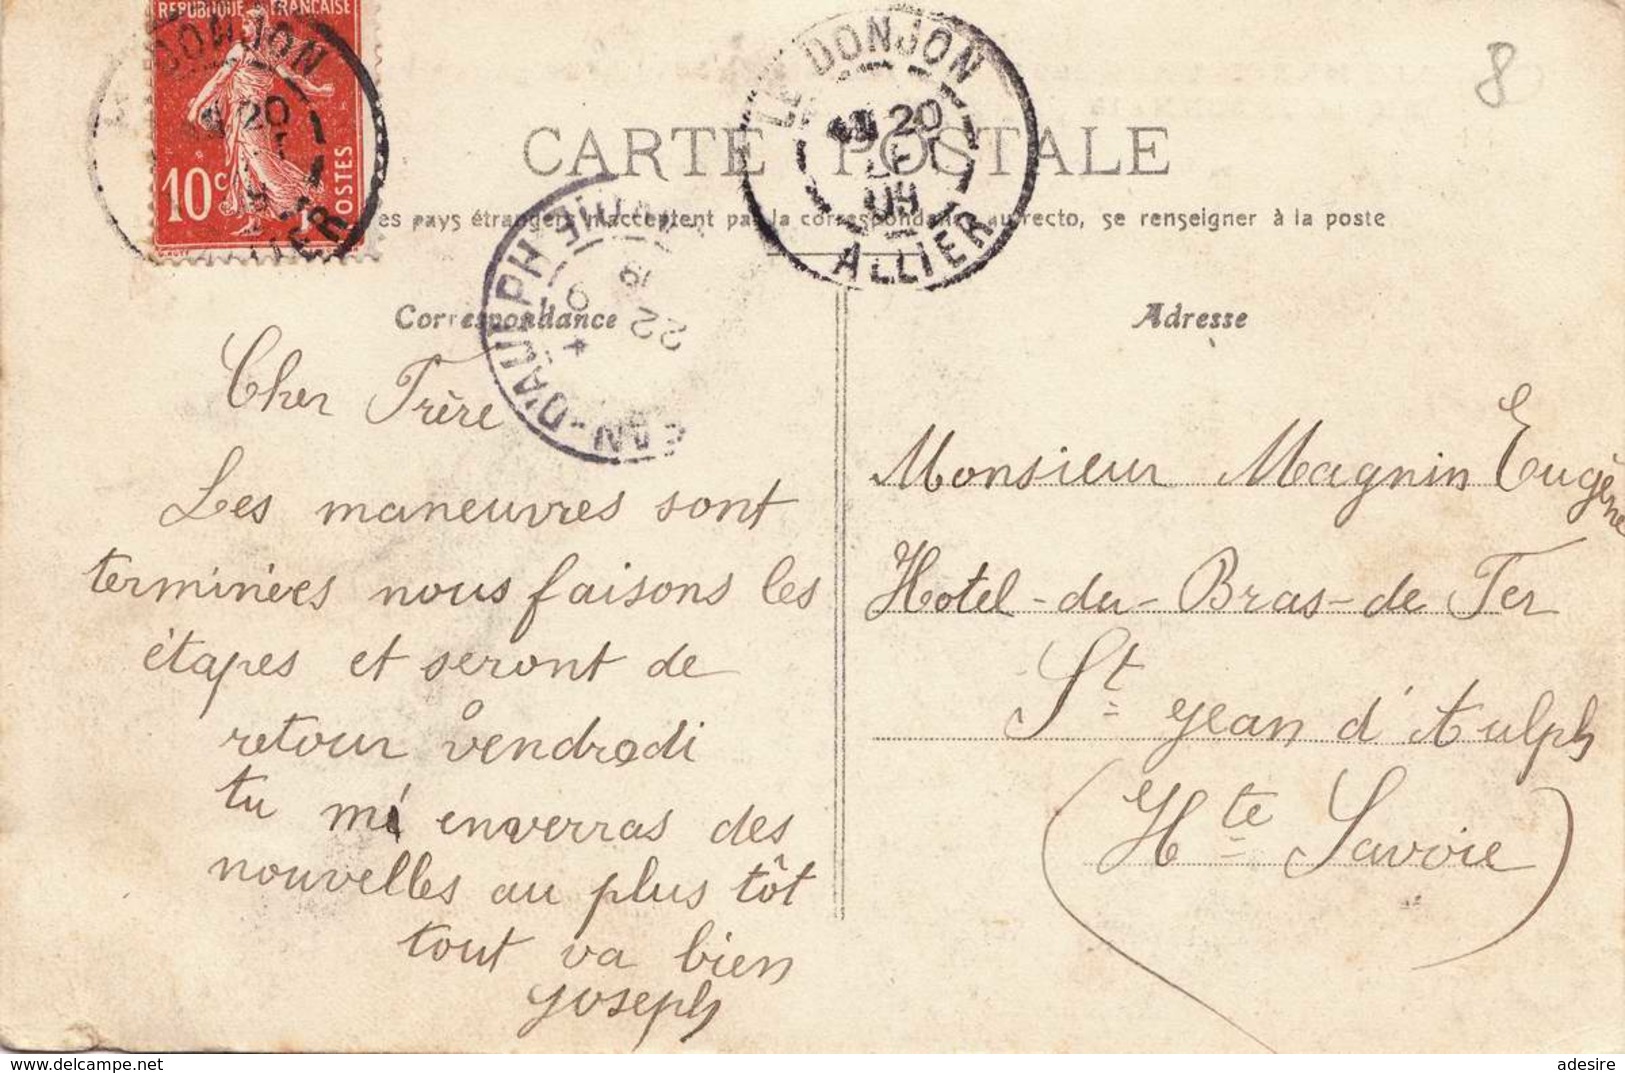 REPUBLIQUE FRANÇAISE
10c
POSTES
LE DONJON
20
09
ALLIER
8
CARTE POSTALE
es pays étrangers n'acceptent pas la correspondance au recto, se renseigner à la poste
EAN-D'AULPH HTE
22
9
Correspondance
Adresse
Cher Frère
Les maneuvres sont
terminées nous faisons les
étapes et seront de
retour vendredi
tu m'enverras des
nouvelles au plus tôt
tout va bien
Joseph
Monsieur Magnin Eugène
Hotel-du-Bras-de Fer
St Jean d'Aulph
(Hte Savoie)
adesire